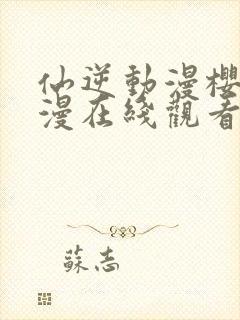 仙逆動漫櫻
漫在綫觀看
蘇志